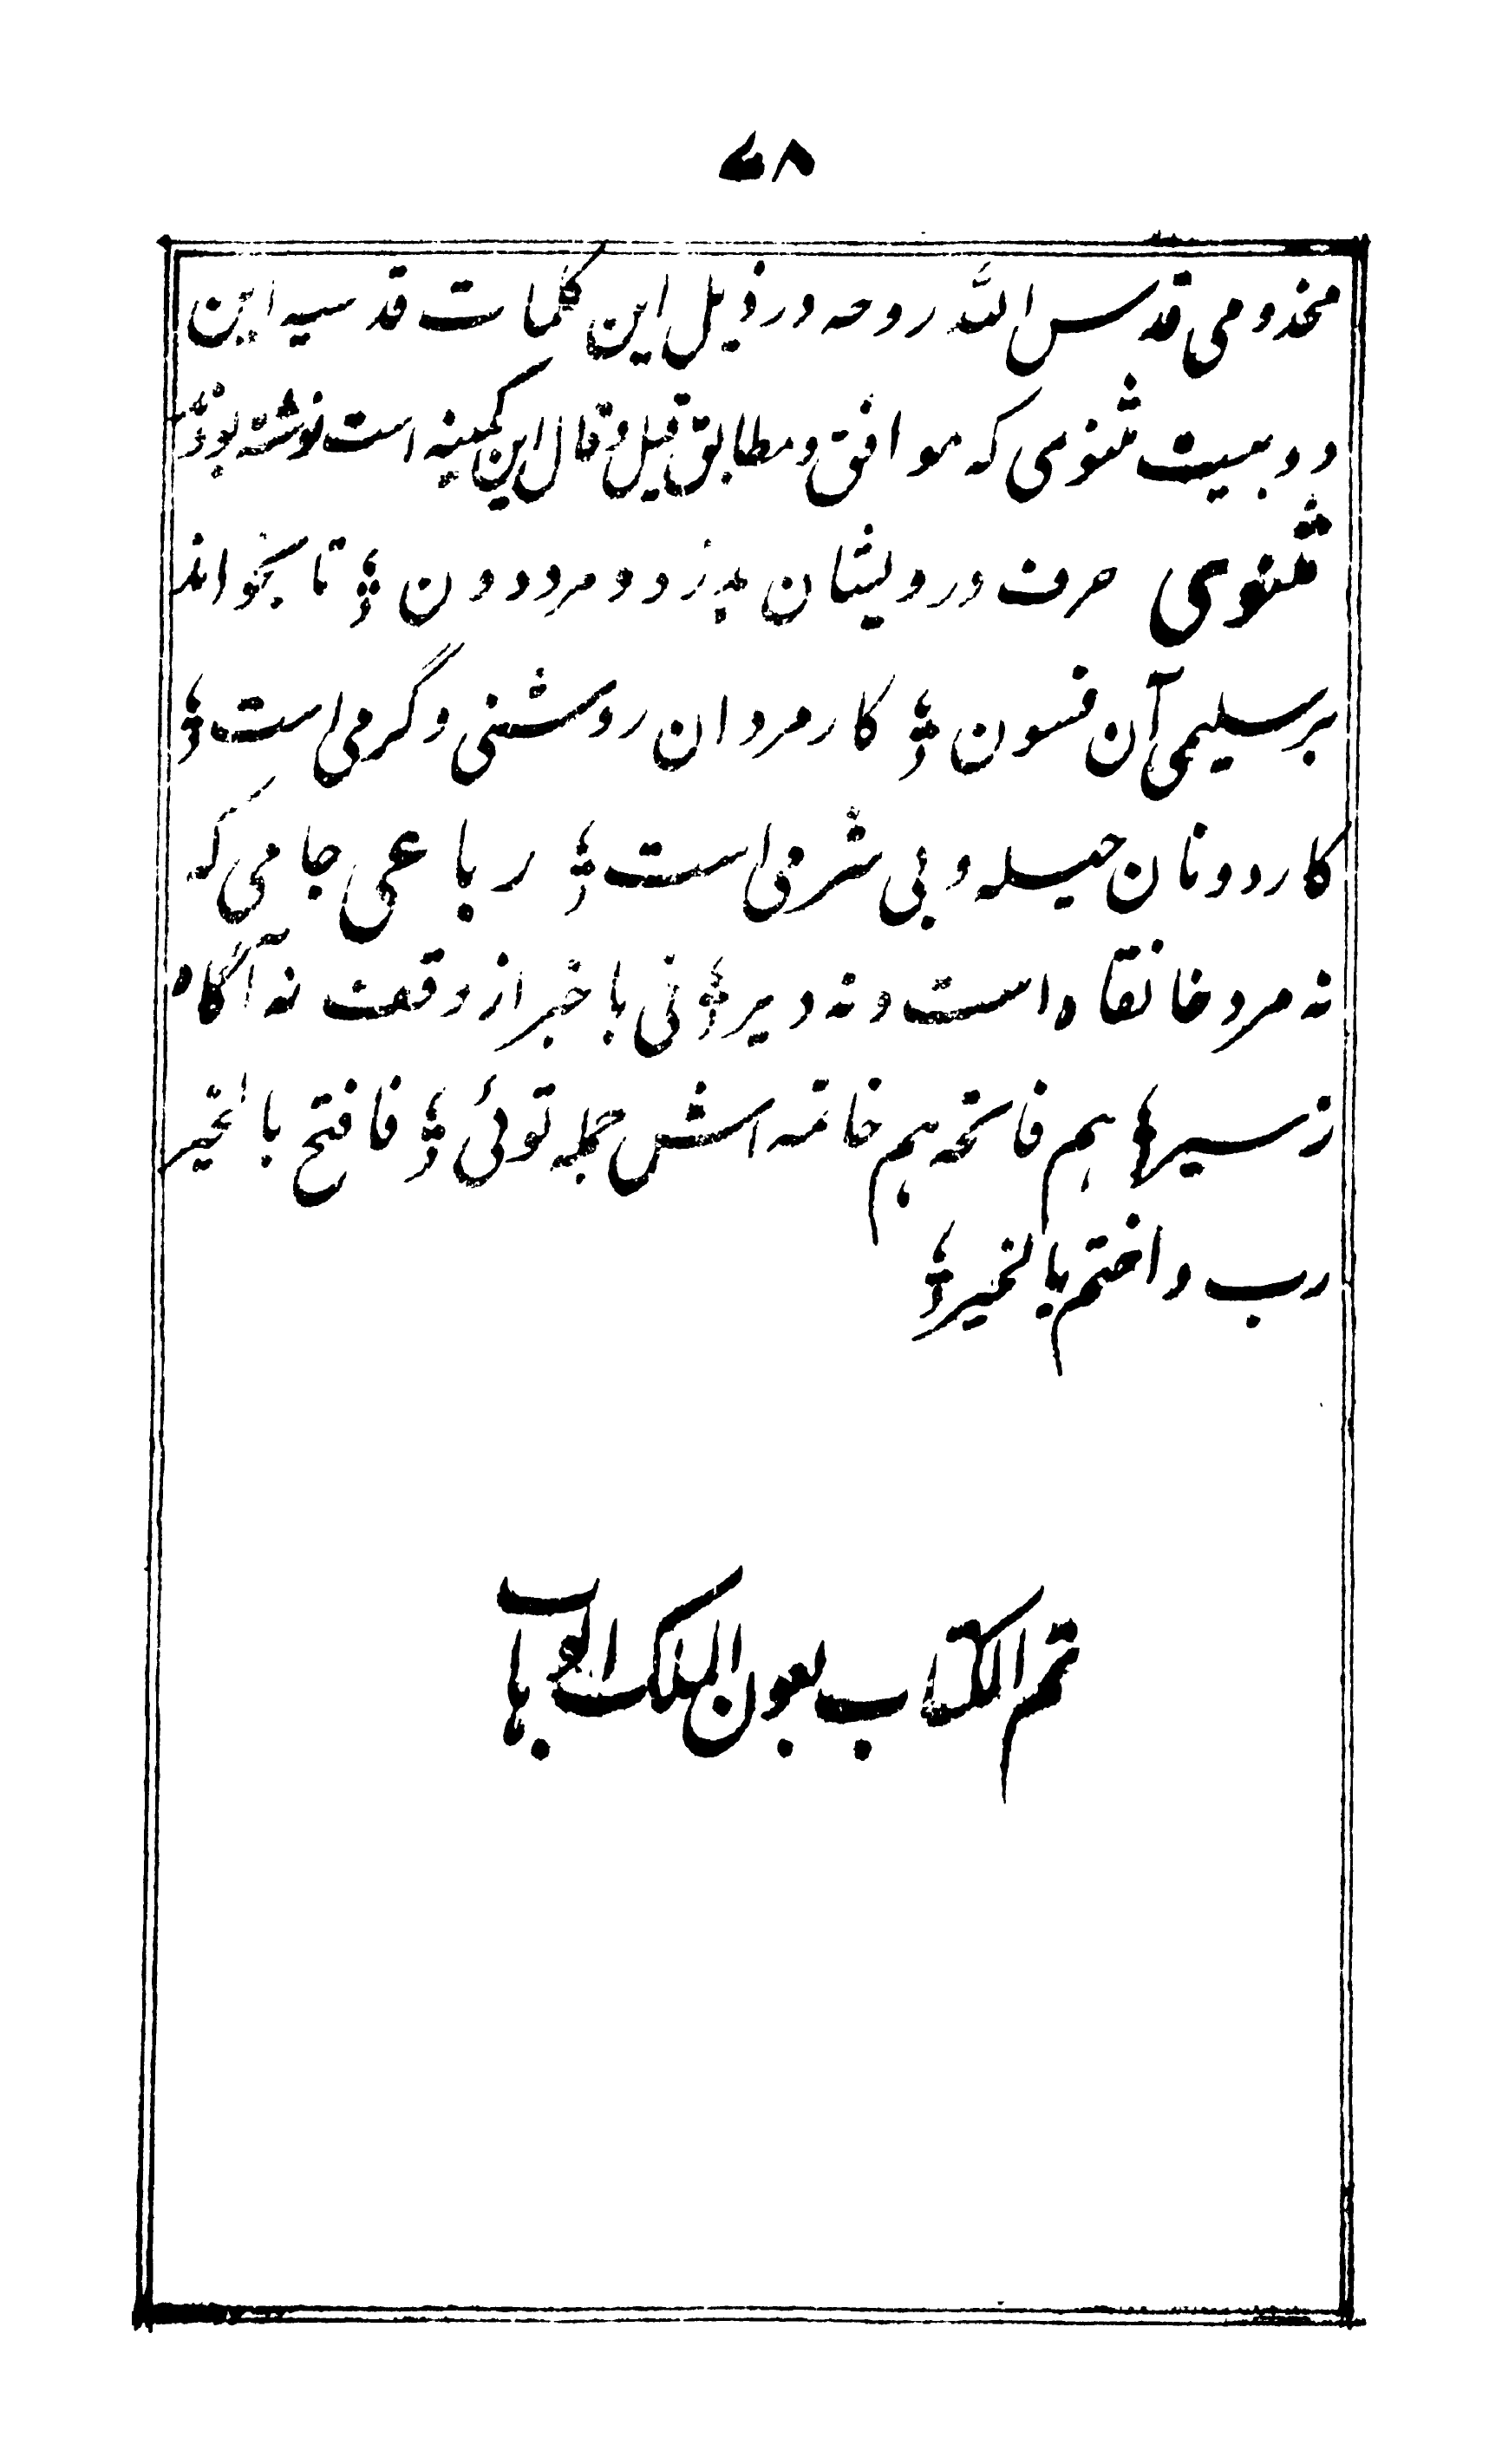 ۷۸
مخدومی قدس الله روحه در ذیل این کلمات قدسیه این
دو بیت مثنوی که موافق و مطابق قیل و قال این کمینه است نوشته بودند
مثنوی حرف درویشان بدزدد مرد دون ؛ تا بخواند
بر سلیمی آن فسون ؛ کار مردان روشنی و گرمی است ؛
کار دونان حیله و بی شرمی است ؛ رباعی جامی که
نه مرد خانقاه است و نه دیر ؛ نی با خبر از وقفت نه آگاه
ز سیر ؛ هم فاتحه هم خاتمه اش جمله توئی ؛ فافتح بالخیر
رب واختم بالخیر ؛
تم الکتاب بعون الملک الوهاب